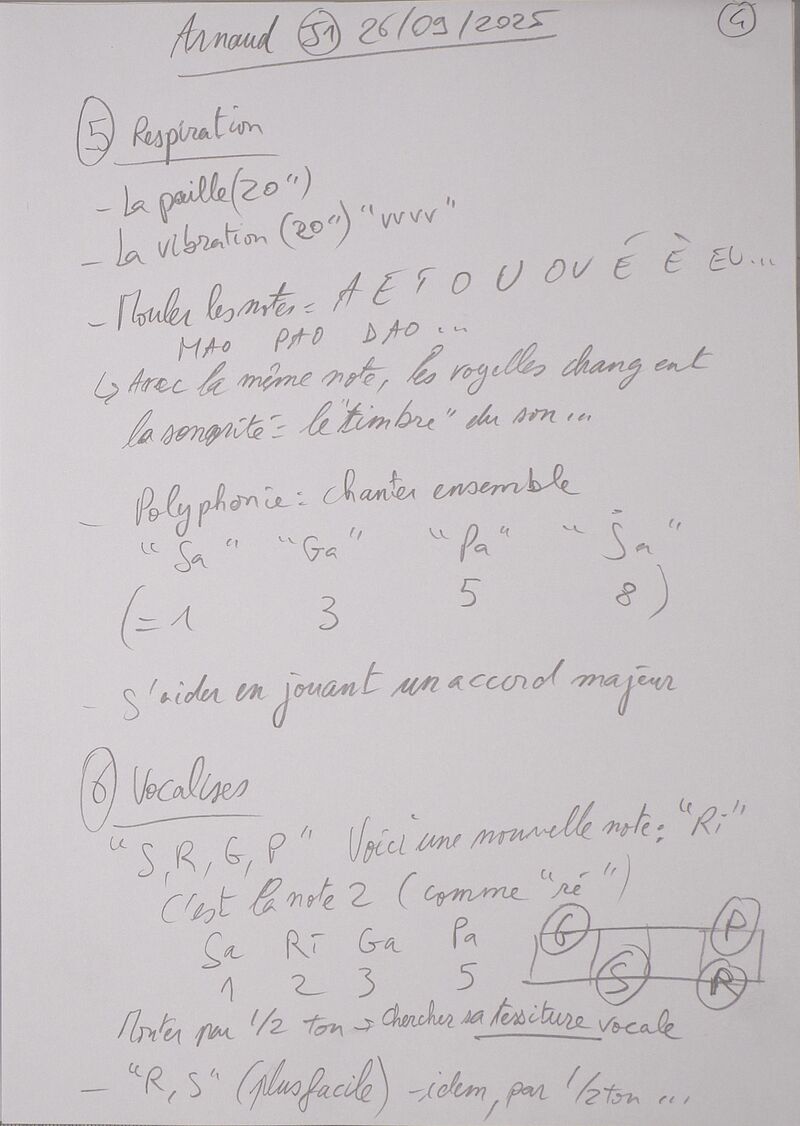 Arnaud J1 26/09/2025 4
5 Respiration
- La paille (20")
- La vibration (20") "vvvv"
- Mouler les notes = A E I O U OU É È EU...
MAO PAO DAO ...
↳ Avec la même note, les voyelles changent
la sonorité = le "timbre" du son...
- Polyphonie = chanter ensemble
"Sa" "Ga" "Pa" "Ṡa"
(= 1 3 5 8)
- S'aider en jouant un accord majeur
6 Vocalises
"S, R, G, P" Voici une nouvelle note : "Ri"
C'est la note 2 (comme "ré")
Sa Ri Ga Pa
1 2 3 5
G P
S R
Monter par 1/2 ton → Chercher sa tessiture vocale
- "R, S" (plus facile) - idem, par 1/2 ton ...